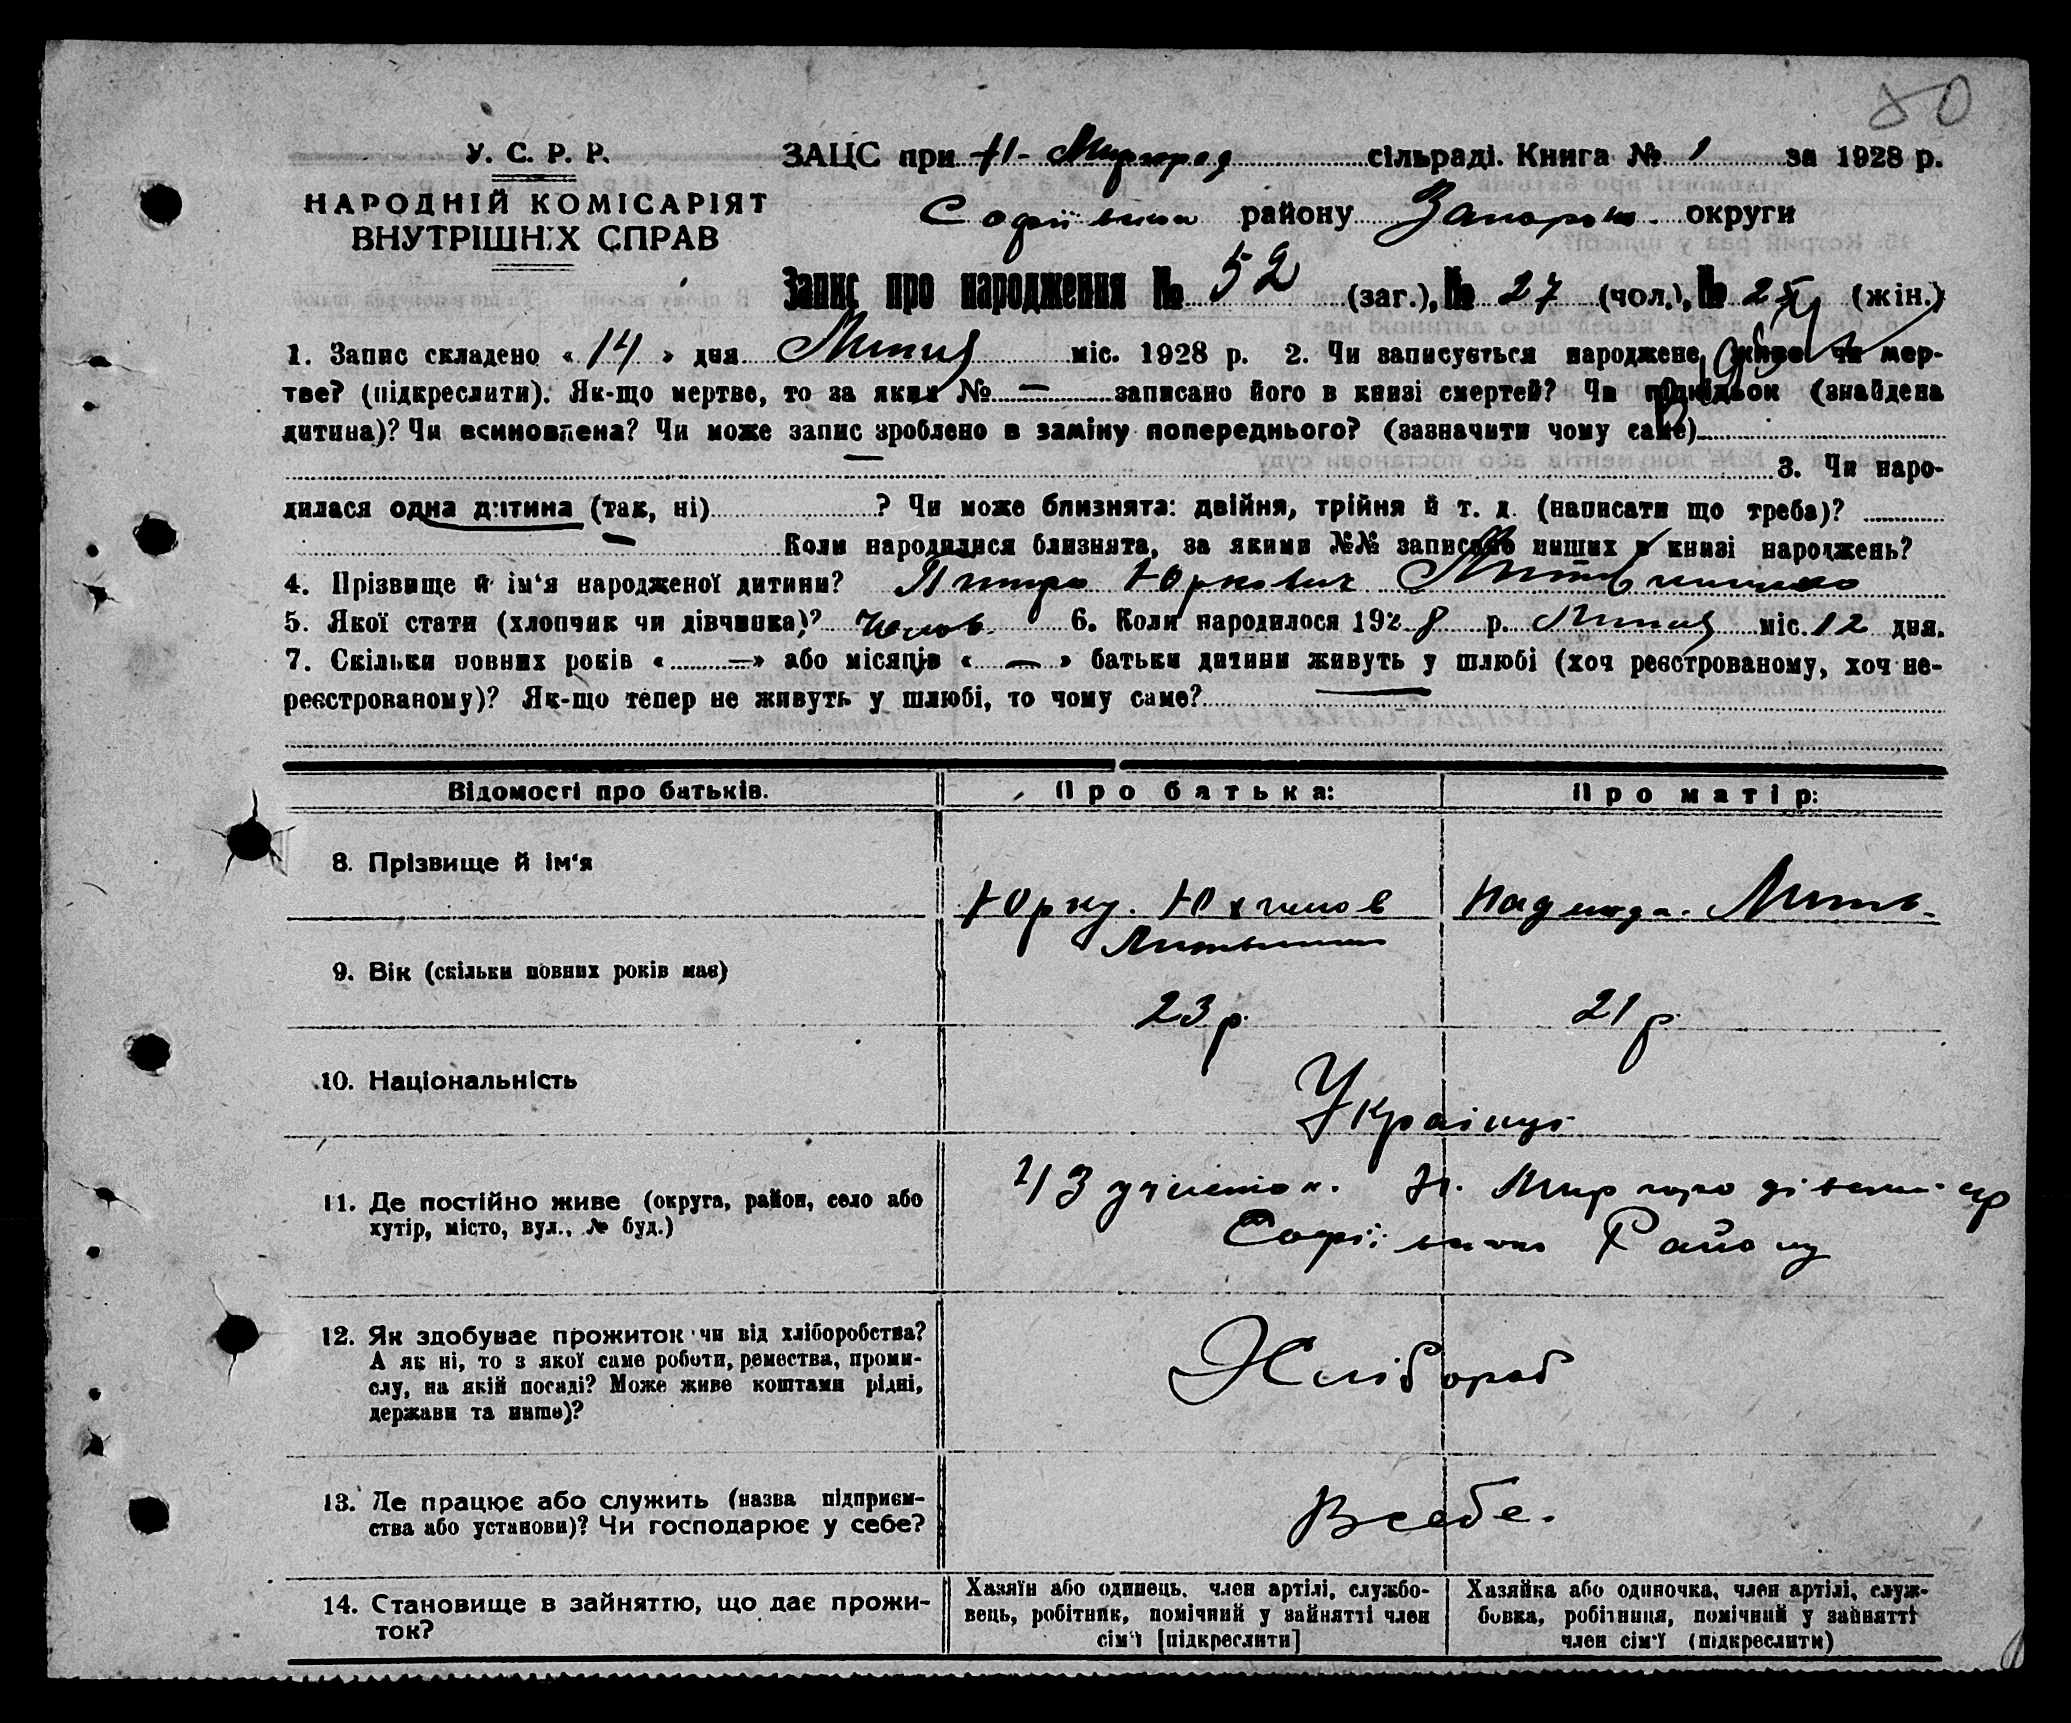 80
У. С. Р. Р.
НАРОДНІЙ КОМІСАРІЯТ
ВНУТРІШНІХ СПРАВ
ЗАЦС при Н-Миргород сільраді. Книга № 1 за 1928 р.
району округи
Запис про народження № 52 (заг.), № 27 (чол.), № 25 (жін.)
1. Запис складено « 14 » дня Липця міс. 1928 р. 2. Чи записується народжене живе чи мер-
тве? (підкреслити). Як-що мертве, то за яким № — записано його в книзі смертей? Чи підкідьок (знайдена
дитина)? Чи всиновлена? Чи може запис зроблено в заміну попереднього? (зазначити чому саме)
3. Чи наро-
дилася одна дитина (так, ні) ? Чи може близнята: двійня, трійня й т. д. (написати що треба)?
Коли народилися близнята, за якими №№ записано инших в книзі народжень?
4. Прізвище й ім'я народженої дитини? Юркович
5. Якої стати (хлопчик чи дівчинка)? Чолов. 6. Коли народилося 1928 р. Липця міс. 12 дня.
7. Скільки повних років « — » або місяців « — » батьки дитини живуть у шлюбі (хоч реєстрованому, хоч не-
реєстрованому)? Як-що тепер не живуть у шлюбі, то чому саме?
Відомості про батьків. Про батька: Про матір:
8. Прізвище й ім'я
Юрку. Юхимов Надежда. Литв.
9. Вік (скільки повних років має)
23 р. 21 р.
10. Національність
Українці
11. Де постійно живе (округа, район, село або
хутір, місто, вул., № буд.)
Району
12. Як здобуває прожиток чи від хліборобства?
А як ні, то з якої саме роботи, ремества, проми-
слу, на якій посаді? Може живе коштами рідні,
держави та инше)?
Хлібороб
13. Де працює або служить (назва підприєм-
ства або установи)? Чи господарює у себе?
В себе.
14. Становище в зайняттю, що дає прожи-
ток?
Хазяїн або одинець, член артілі, службо-
вець, робітник, помічний у зайнятті член
сім'ї [підкреслити]
Хазяйка або одиночка, член артілі, служ-
бовка, робітниця, помічний у зайнятті
член сім'ї (підкреслити)